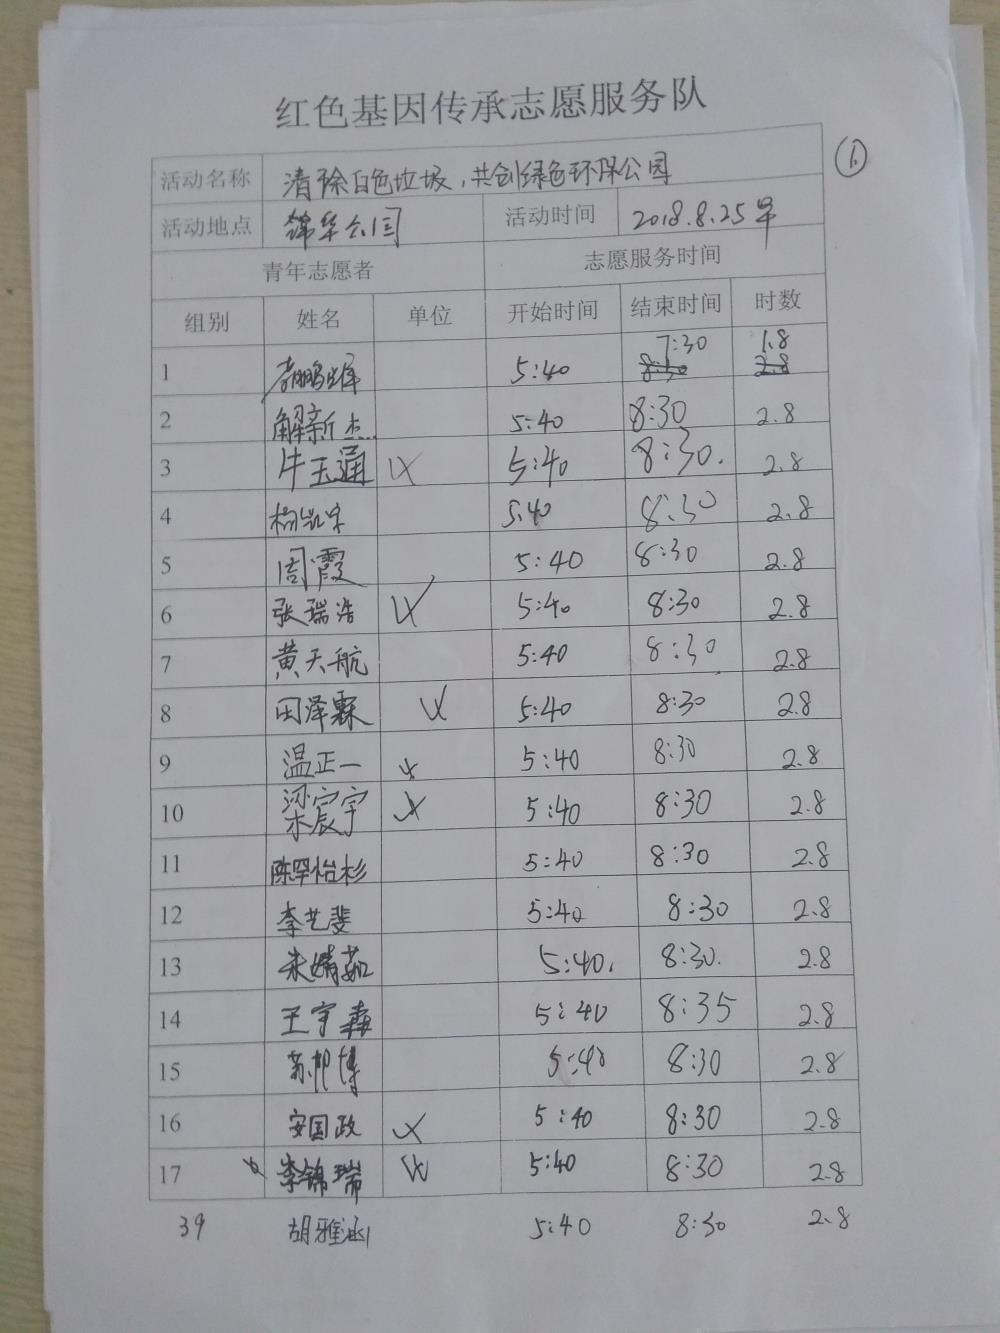 红色基因传承志愿服务队
①
活动名称 清除白色垃圾,共创绿色环保公园
活动地点 锦华公园 活动时间 2018.8.25早
青年志愿者 志愿服务时间
组别 姓名 单位 开始时间 结束时间 时数
1 5:40 7:30 1.8
2 解新杰 5:40 8:30 2.8
3 牛玉通 5:40 8:30. 2.8
4 5:40 8:30 2.8
5 周霞 5:40 8:30 2.8
6 张瑞浩 5:40 8:30 2.8
7 黄天航 5:40 8:30 2.8
8 田泽霖 5:40 8:30 2.8
9 温正一 5:40 8:30 2.8
10 梁宸宇 5:40 8:30 2.8
11 陈罕怡杉 5:40 8:30 2.8
12 李艺斐 5:40 8:30 2.8
13 朱婧茹 5:40. 8:30. 2.8
14 王宇 5:40 8:35 2.8
15 苏 博 5:40 8:30 2.8
16 安国政 5:40 8:30 2.8
17 李锦瑞 5:40 8:30 2.8
39 胡雅涵 5:40 8:30 2.8